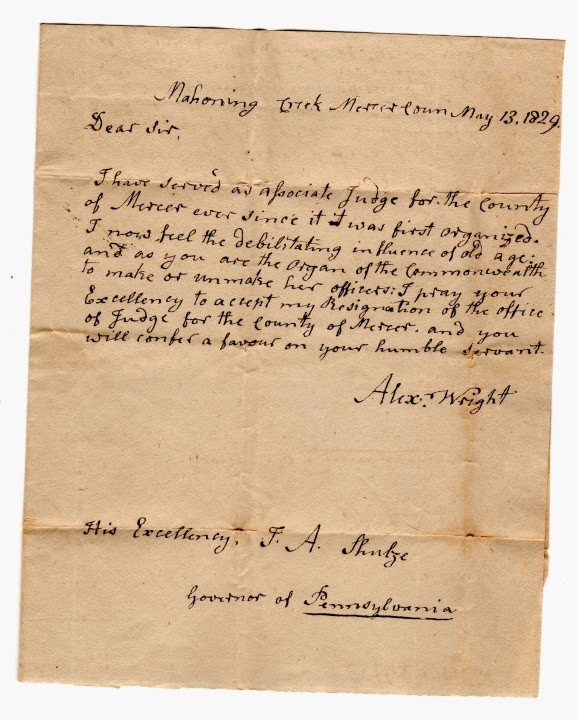 Mahoning Creek Mercer Coun May 13, 1829.
Dear Sir,
I have serv'd as associate Judge for the County
of Mercer ever since it was first organized.
I now feel the debilitating influence of old age;
and as you are the Organ of the Commonwealth
to make or unmake her officers: I pray your
Excellency to accept my Resignation of the office
of Judge for the County of Mercer. and you
will confer a favour on your humble servant.
Alexr. Wright
His Excellency, J. A. Shulze
Governor of Pennsylvania